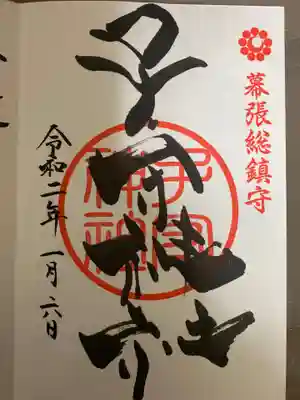 幕張総鎮守
子守神社
令和二年一月六日